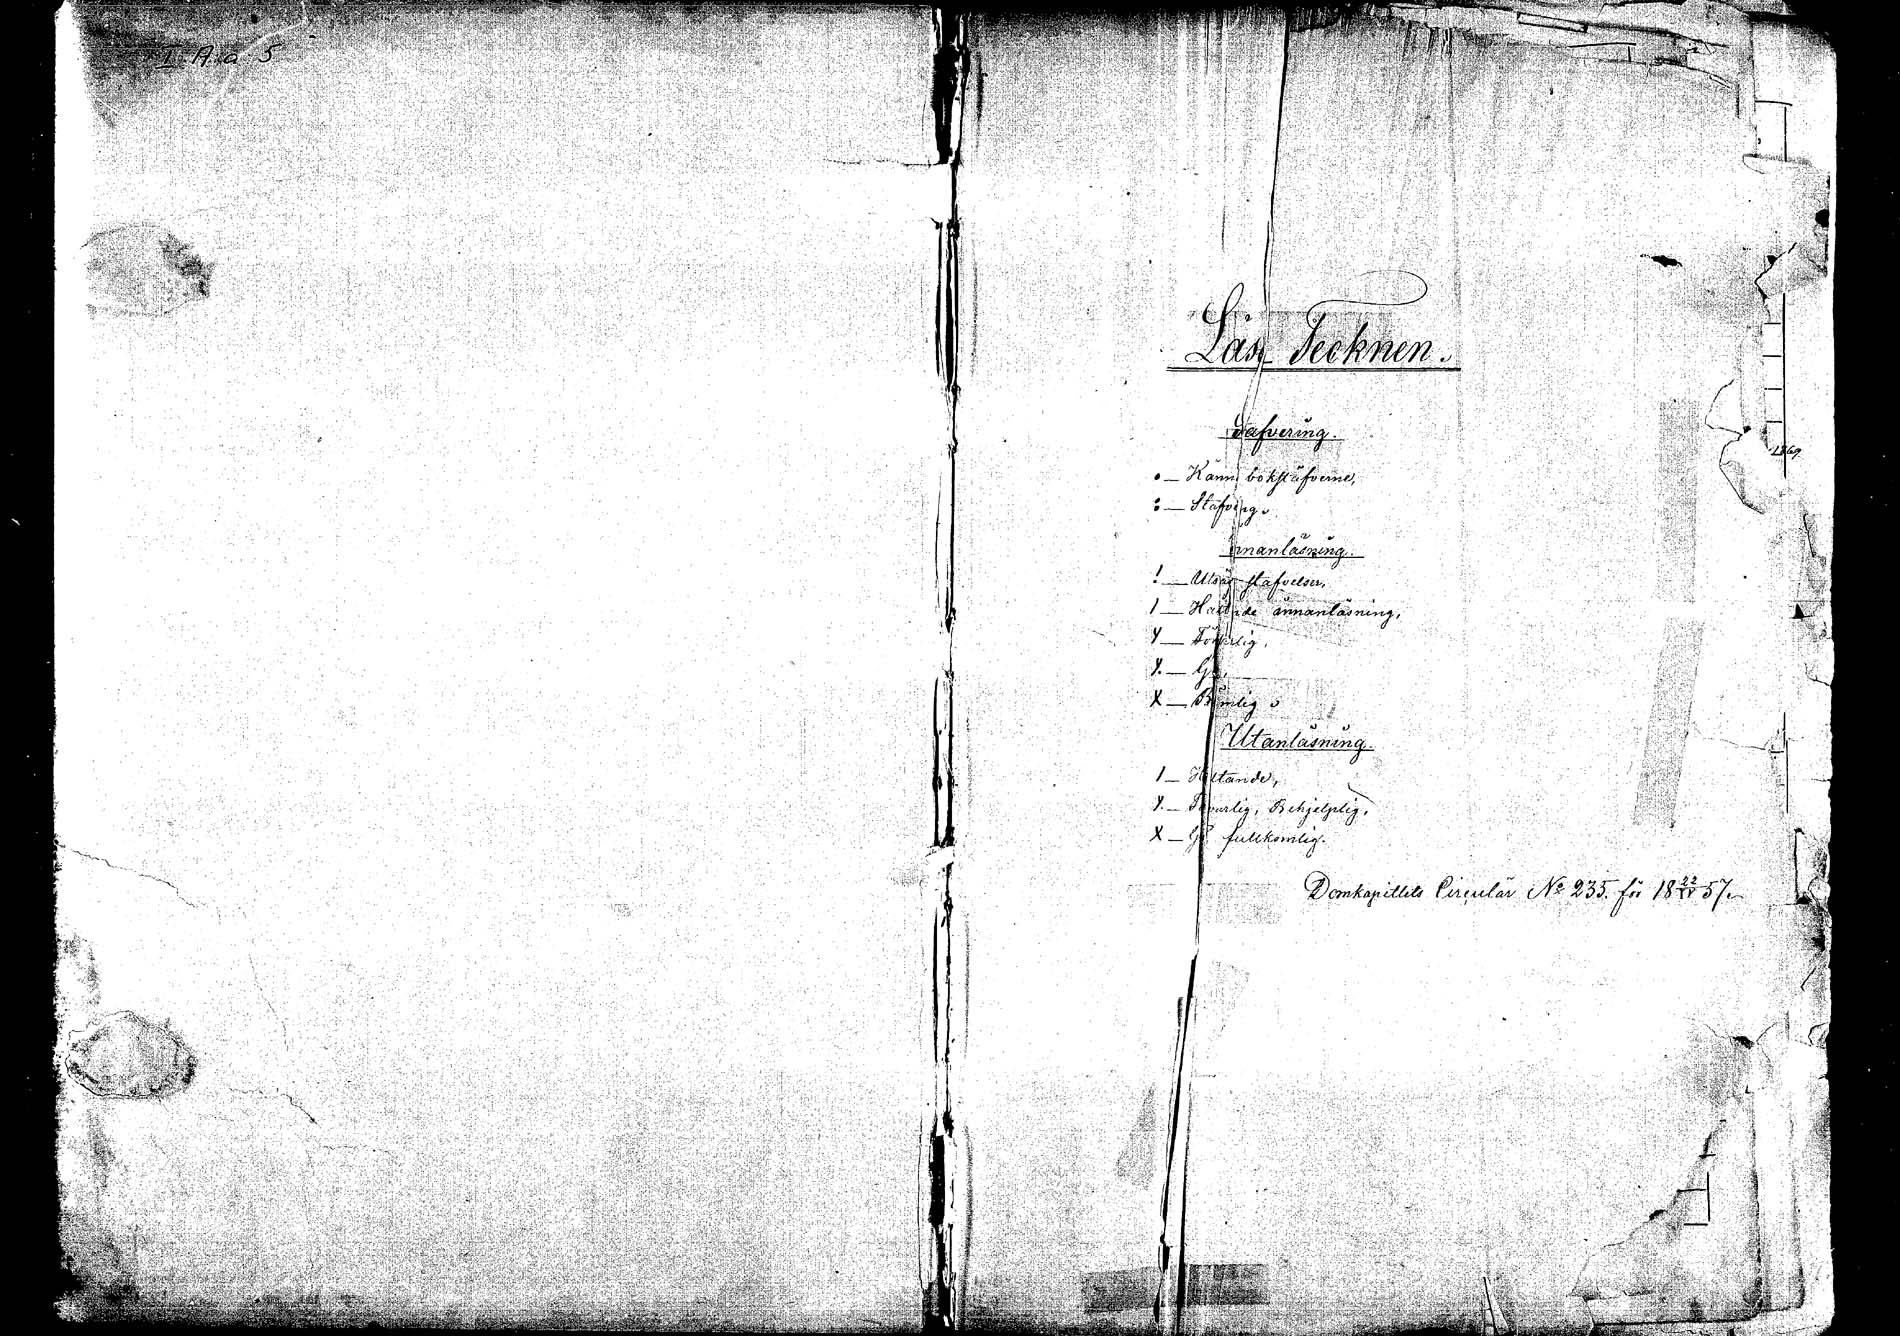 I A.a 5
Läs-Tecknen.
Stafvering.
Känn bokstäfverne,
Stafving.
Innanläsning.
! — Utsäg stafvelser,
I — Haltande innanläsning,
Y — Försvarlig,
Y. — God,
X — Berömlig.
Utanläsning.
I — Haltande,
Y. — Försvarlig, Behjelplig,
X — God fullkomlig.
Domkapitlets Circulär No 235. för 18 22/IV 57.
1869